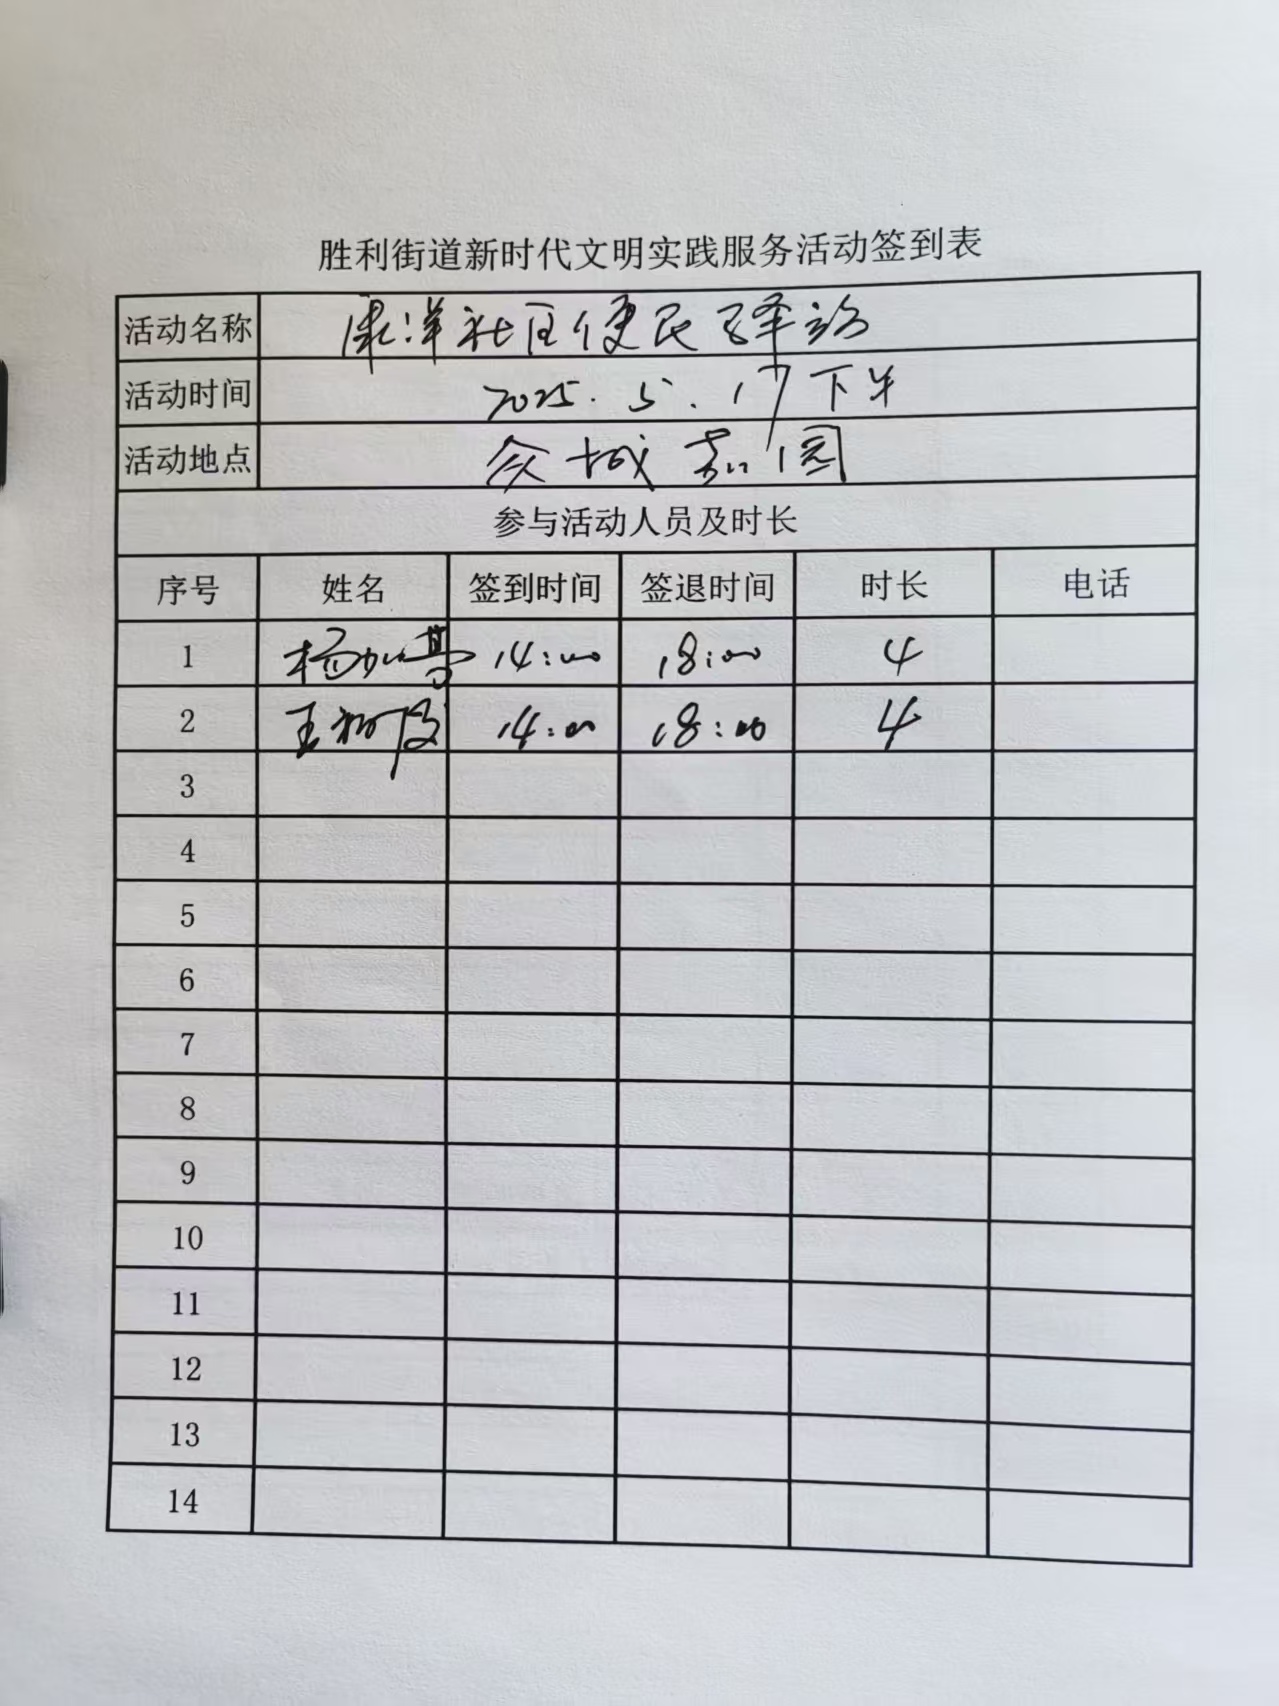 胜利街道新时代文明实践服务活动签到表
活动名称 康洋社区便民驿站
活动时间 2025.5.17下午
活动地点 众城嘉园
参与活动人员及时长
序号 姓名 签到时间 签退时间 时长 电话
1 杨 14:00 18:00 4
2 王 14:00 18:00 4
3
4
5
6
7
8
9
10
11
12
13
14